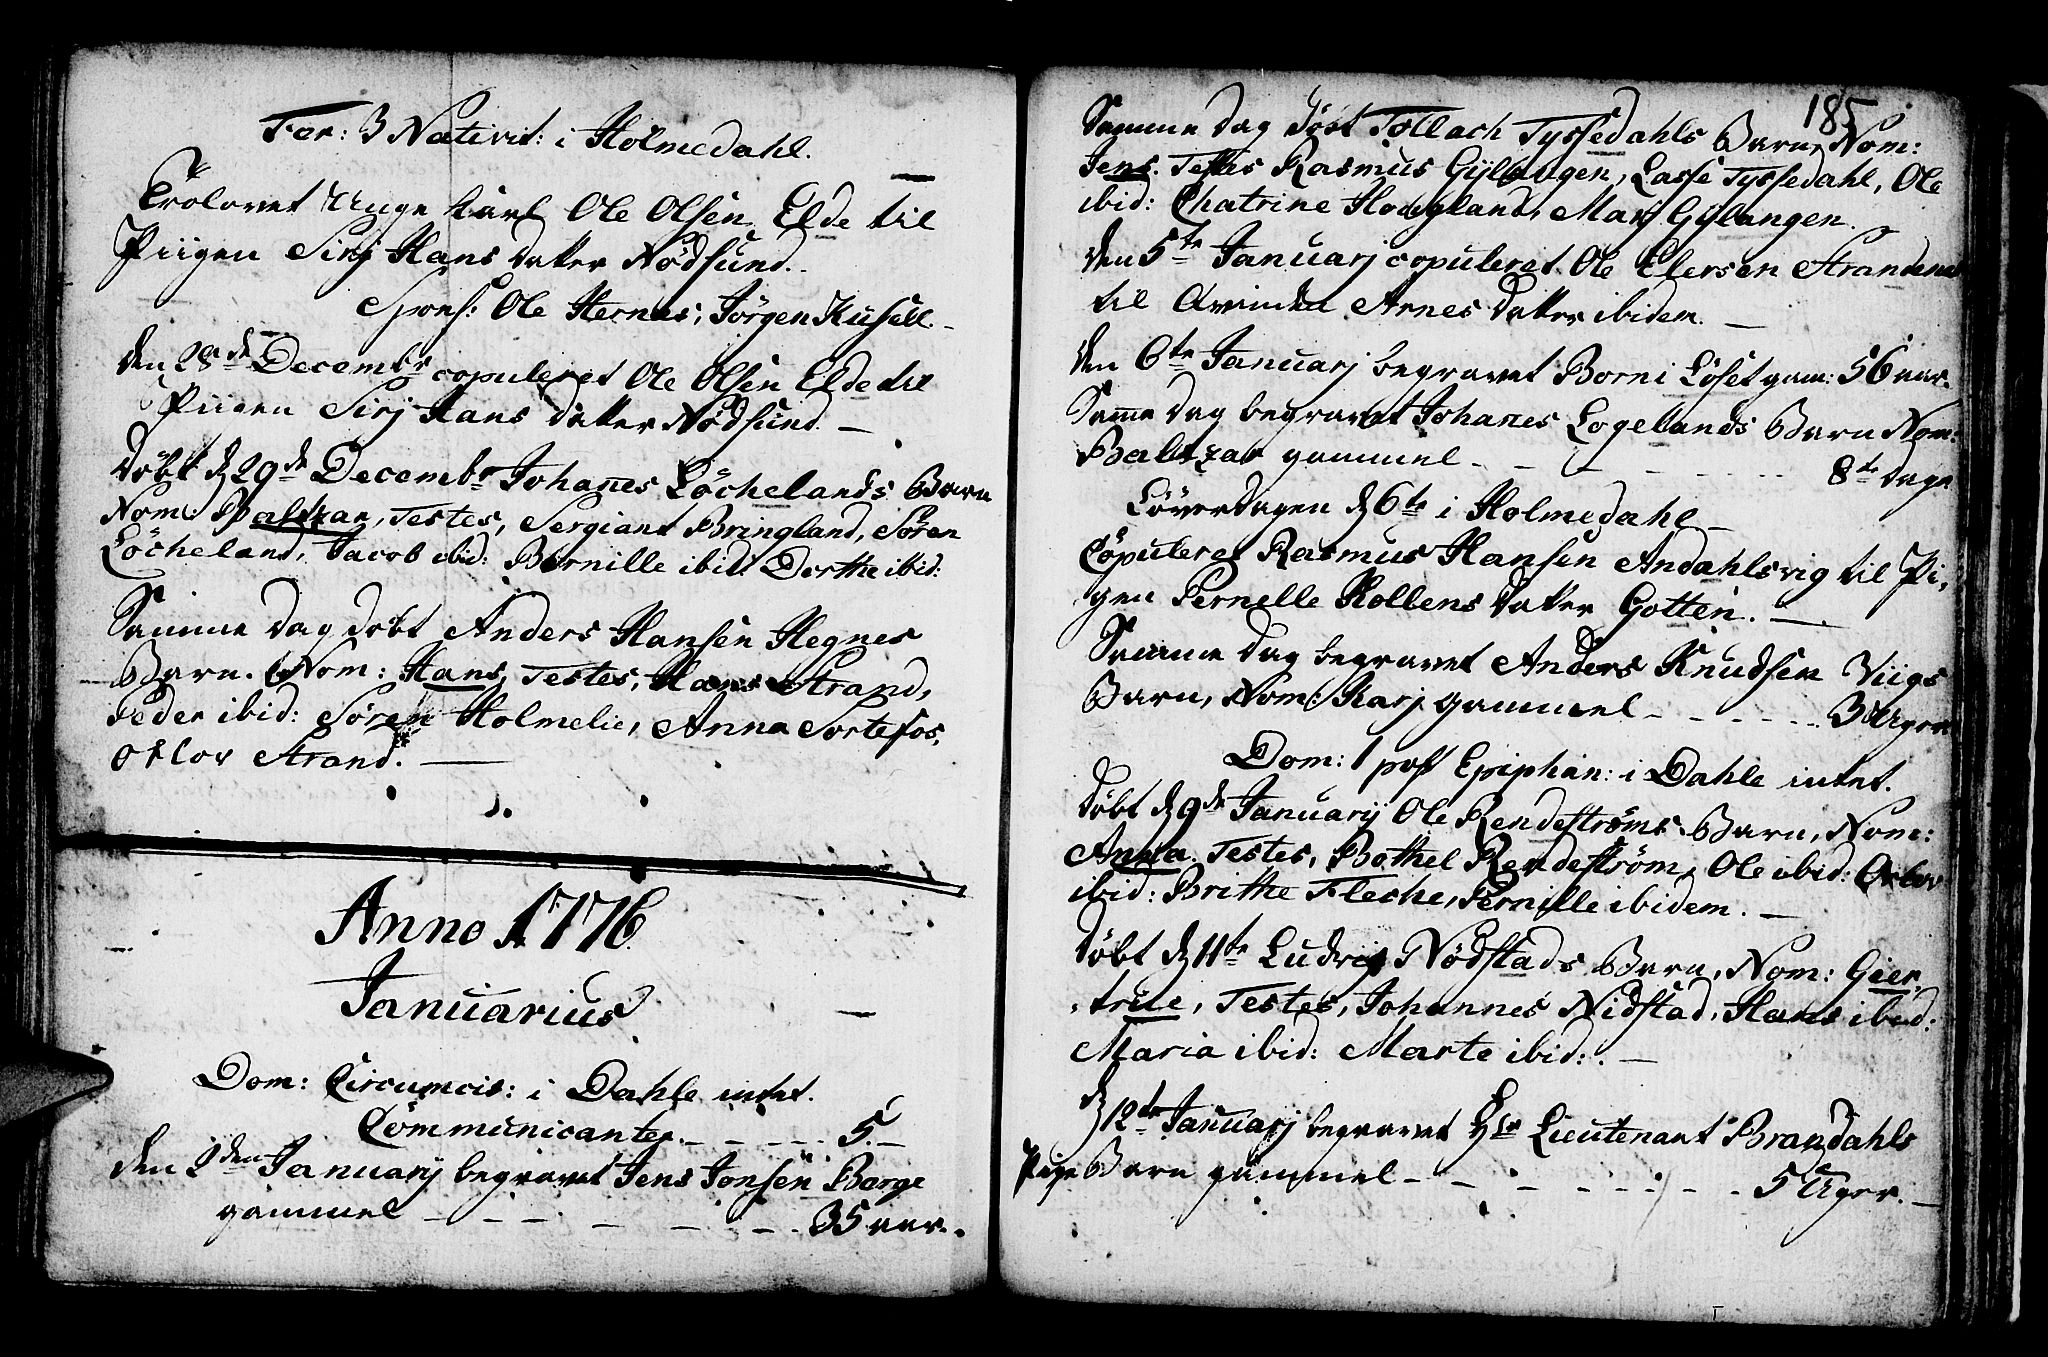 Fer: 3 Nativit: i Holmedahl.
Trolovet Unge Karl Ole Olsen Elde til
Piigen Sirj Hans datter Nødsund.
Spons: Ole Hernes, Jörgen Küsell.
den 28de Decembr copuleret Ole Olsen Elde til
Piigen Sirj Hans datter Nödsund.
döbt d 29de Decembr Johanes Löchelands Barn
Nom: Baltzar, Testes, Sergiant Bringland, Sören
Löcheland, Jacob ibid: Bernille ibid: Dorthe ibid:
Samme dag döbt Anders Hansen Hegnes
Barn. Nom: Hans, Testes, Hans Strand,
Peder ibid: Sören Holmelie, Anna Sortefos,
Orlov Strand.
Anno 1776
Januarius
Dom: Circumcis: i Dahle intet.
Communicanter 5.
den 2den Januarij begravet Jens Jonsen Borge
gammel 35 aar.
185
Samme dag döbt Tollach Tyssedahls Barn, Nom:
Jens. Testes Rasmus Gylangen, Lasse Tyssedahl, Ole
ibid: Chatrine Hougland, Marj Gylangen.
den 5te Januarj copuleret Ole Elersen Strandenes
til Qvinden Arnes datter ibidem.
den 6te Januarj begravet Borni Löset gam: 56 aar.
Samme dag begravet Johanes Logelands Barn Nom:
Baltzar gammel 8te dage
Löverdagen d 6te i Holmedahl
Copuleret Rasmus Hansen Andahlsvig til Pi,
gen Pernelle Kollens datter Gotten.
Samme dag begravet Anders Knudsen Viigs
Barn, Nom: Karj gammel 3 Uger.
Dom: 1 post Epiphan: i Dahle intet.
döbt d 9de Januarij Ole Rendeströms Barn, Nom:
Anna. Testes, Bothel Rendeström, Ole ibid: Orlov
ibid: Brithe Fleche, Pernille ibidem.
döbt d 11te Ludvig Nödstads Barn, Nom: Gier,
,true, Testes, Johannes Nidstad, Hans ibid:
Maria ibid: Marte ibid:
d 12te Januarij begravet Hr Lieutenant Brandahls
Pige Barn gammel 5 Uger.